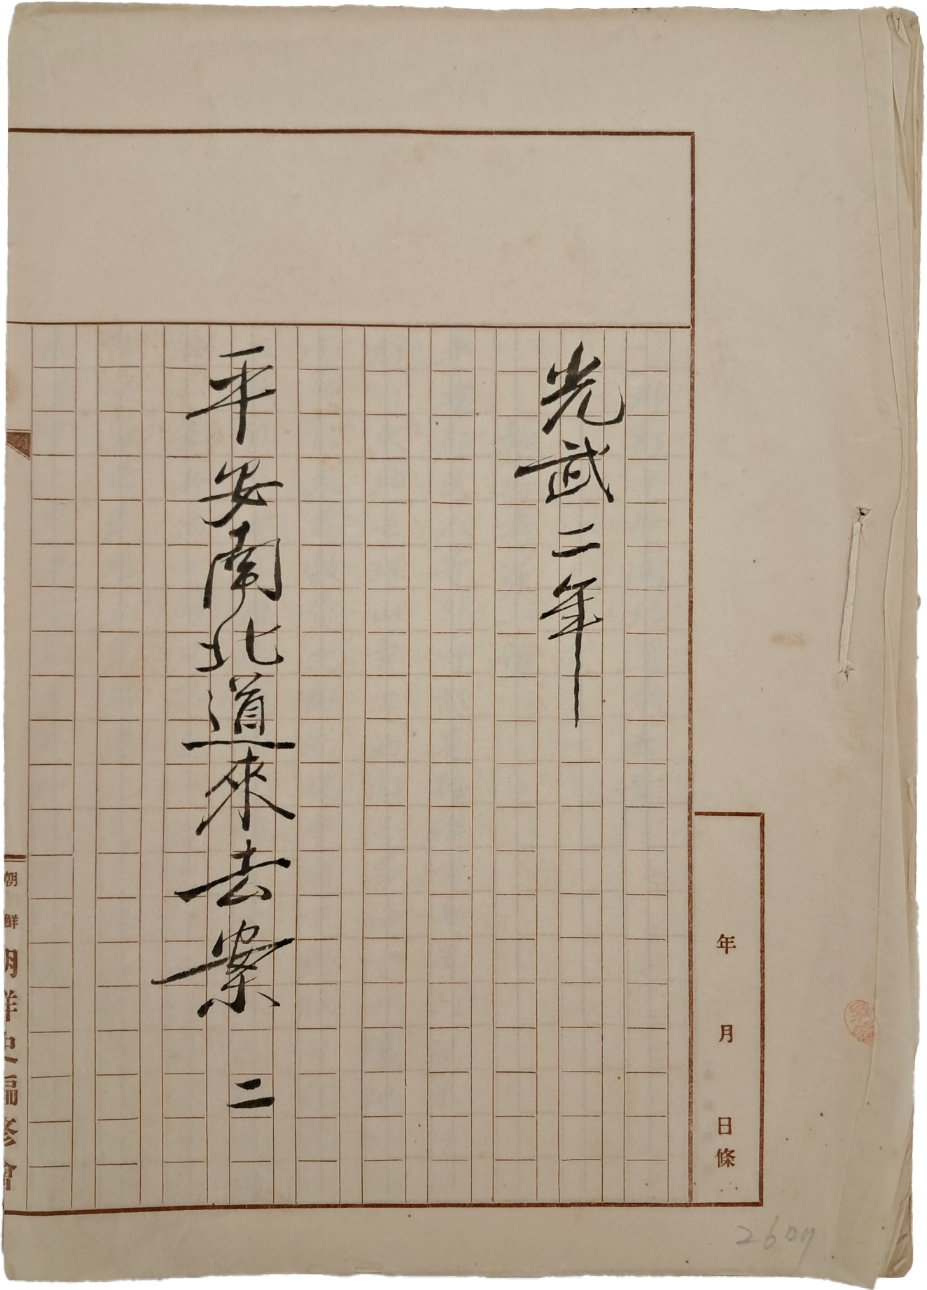 光武二年
平安南北道來去案 二
年 月 日條
朝鮮
朝鮮史編修會